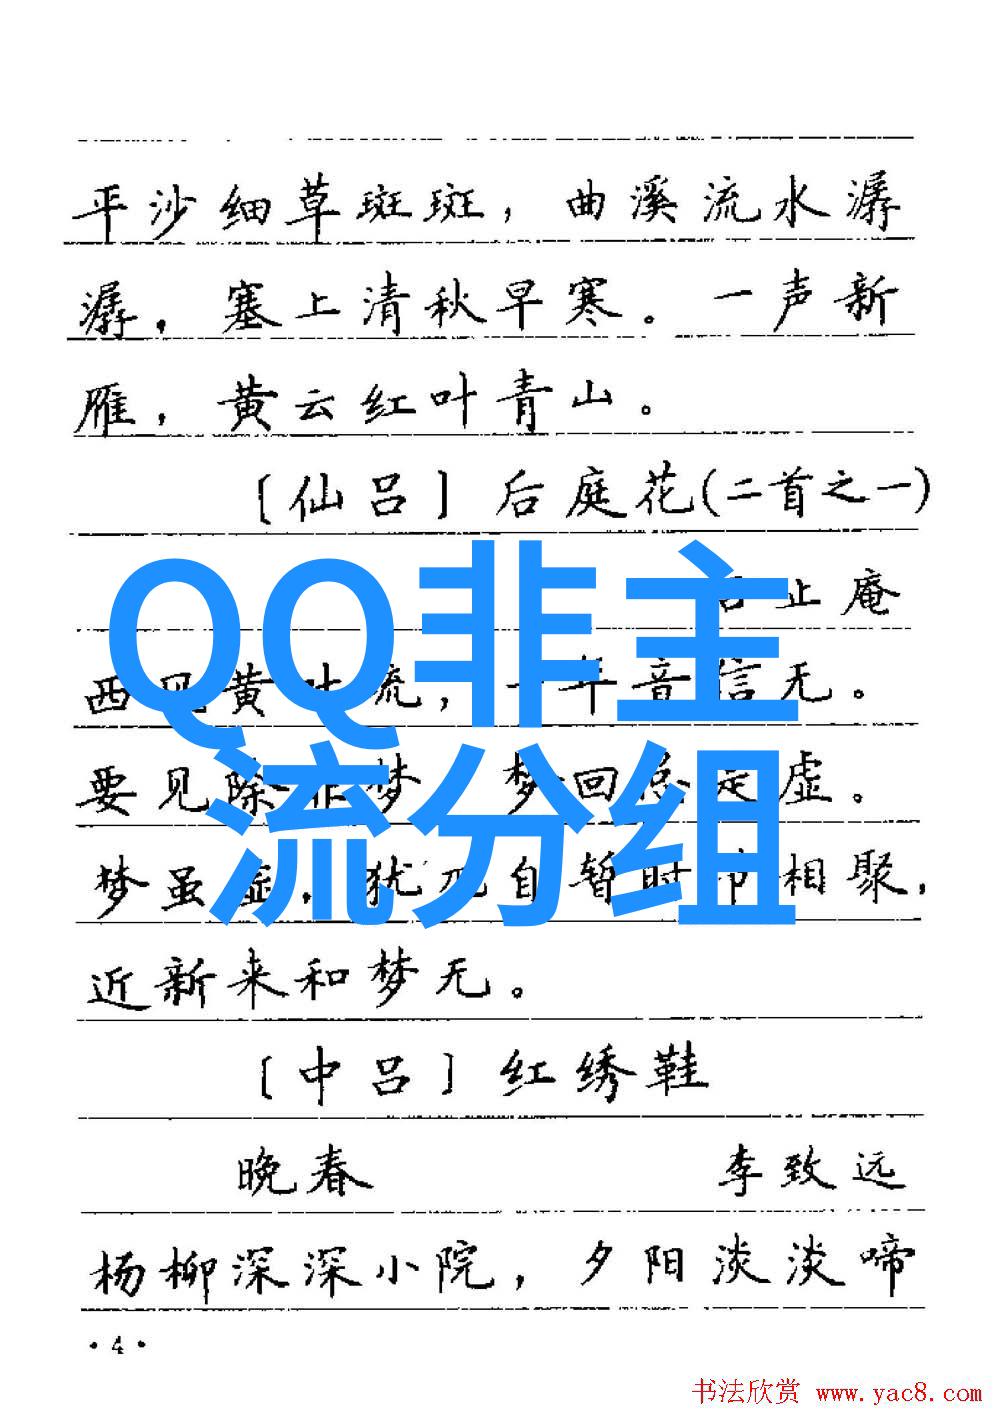 平沙细草斑斑，曲溪流水潺
潺，塞上清秋早寒。一声新
雁，黄云红叶青山。
〔仙吕〕后庭花(二首之一)
止庵
西黄疏，一年音信无。
要见除非梦 梦回虚。
梦虽虚，犹兀自暂时相聚，
近新来和梦无。
〔中吕〕红绣鞋
晚春 李致远
杨柳深深小院，夕阳淡淡啼
·4·
QQ非主
流分组
书法欣赏 www.yac8.com